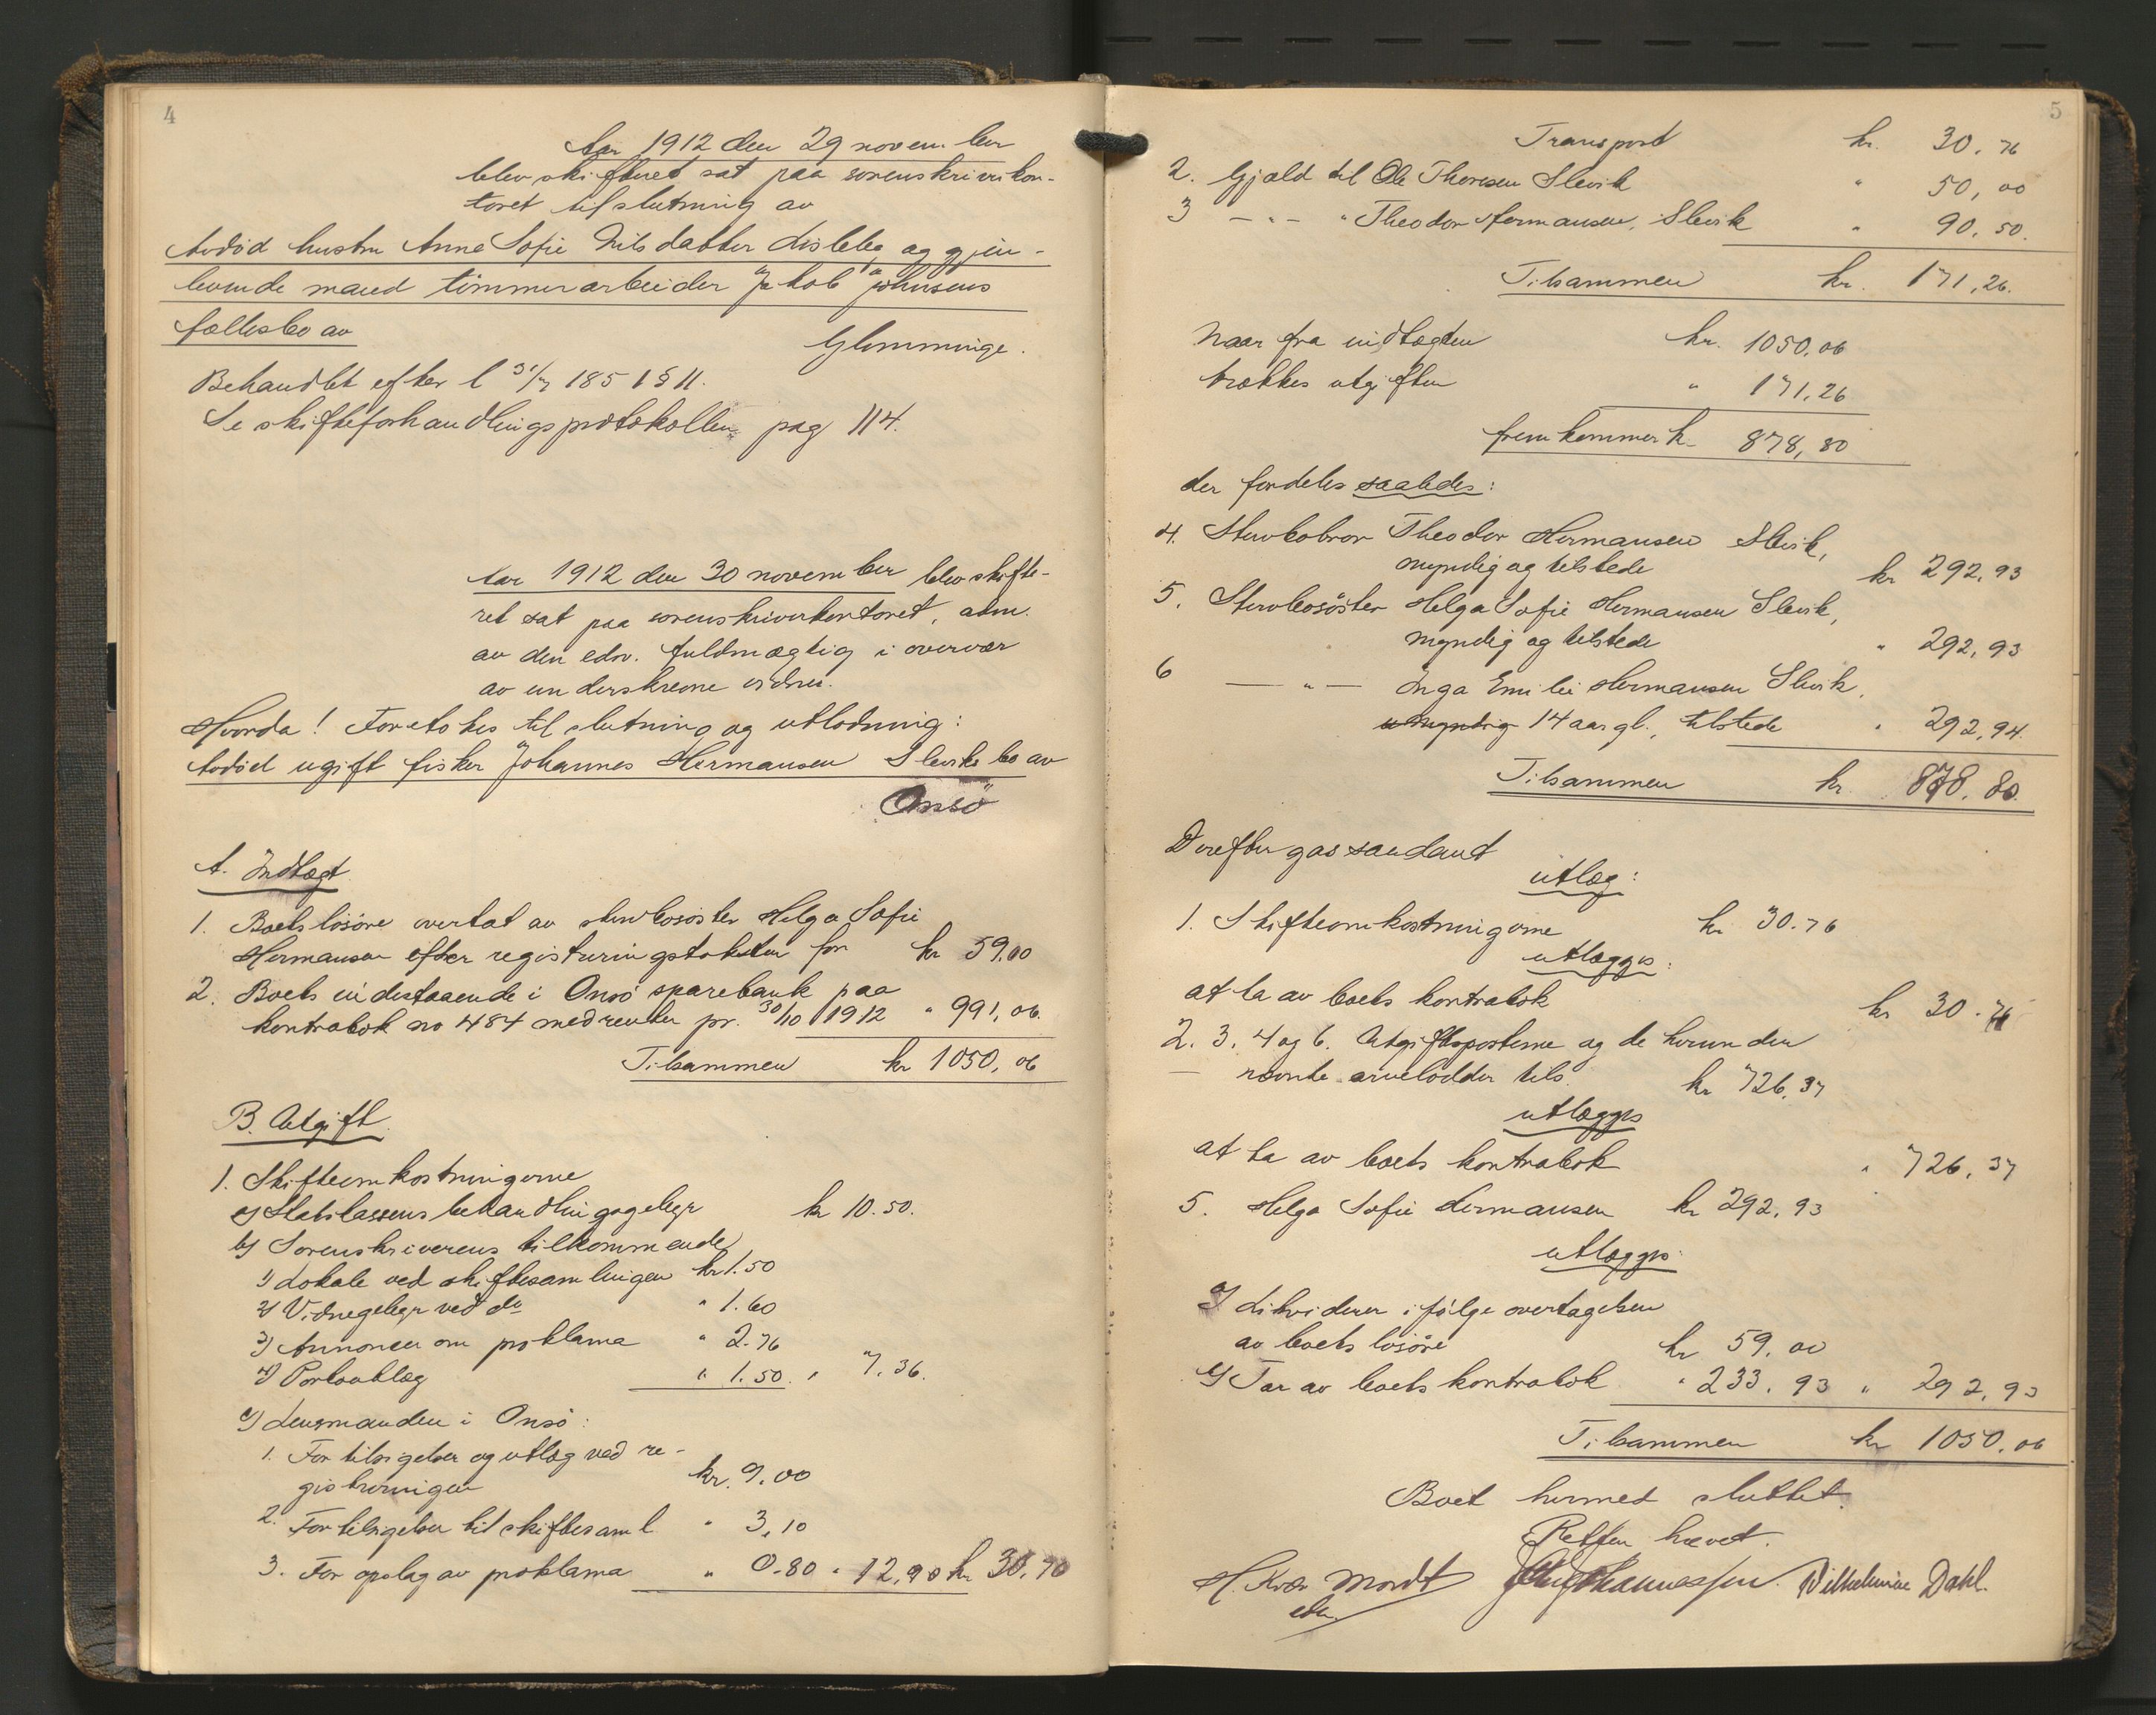 4
Aar 1912 den 29 november
blev skifteret sat paa sorenskriverkon-
toret til slutning av
Avdöd hustru Anne Sofie Nilsdatter Lisleby og gjen-
levende mand tömmerarbeider Jakob Johnsens
fællesbo av
Glemminge.
Behandlet efter l 31/7 1851 § 11.
Se skifteforhandlingsprotokollen pag 114.
Aar 1912 den 30 november blev skifte-
ret sat paa sorenskriverkontoret, adm.
av den edsv. fuldmægtig i overvær
av underskrevne vidner.
Hvorda! Foretokes til slutning og utlodning:
Avdöd ugift fisker Johannes Hermansen Sleviks bo av
Onsö
A. Indtægt.
1. Boets lösöre overtat av stervbosöster Helga Sofie
Hermansen efter registreringstaksten for kr 59,00
2. Boets indestaaende i Onsö sparebank paa
kontrabok no 484 med renter pr. 30/10 1912 " 991,06.
Tilsammen kr 1050,06
B. Utgift.
1. Skifteomkostningerne
a) Statskassens behandlingsgebyr kr 10.50.
b) Sorenskriverens tilkommende
1) Lokale ved skiftesamlingen kr 1.50
2) Vidnegebyr ved do " 1.60
3) Annoncer om proklama " 2.76
4) Portoutlæg " 1.50. " 7.36.
c) Lensmanden i Onsö:
1. For tilsigelser og utlæg ved re-
gistreringen kr. 9.00
2. For tilsigelser til skiftesaml. " 3,10
3. For opslag av proklama " 0.80 " 12,90 kr 30,76
5
Transport kr. 30.76
2. Gjæld til Ole Thoresen Slevik " 50,00
3 — " — " Theodor Hermansen, Slevik " 90.50.
Tilsammen kr. 171,26.
Naar fra indtægten kr. 1050,06
trækkes utgiften " 171,26
fremkommer kr 878,80
der fordeles saaledes:
4. Stervbobror Theodor Hermansen Slevik,
myndig og tilstede kr 292,93
5. Stervbosöster Helga Sofie Hermansen Slevik,
myndig og tilstede " 292,93
6 — " — Inga Emilie Hermansen Slevik,
umyndig 14 aar gl., tilstede " 292,94.
Tilsammen kr. 878,80.
Derefter gas saadant
utlæg:
1. Skifteomkostningerne kr 30.76
utlægges:
at ta av boets kontrabok kr 30.76
2. 3. 4 og 6. Utgiftsposterne og de herunder
— nævnte arvelodder tils. kr 726,37
utlægges
at ta av boets kontrabok " 726,37
5. Helga Sofie Hermansen kr 292,93
utlægges:
a) Likviderer ifölge overtagelsen
av boets lösöre kr 59,00
b) Tar av boets kontrabok " 233,93 " 292,93
Tilsammen kr 1050,06
Boet hermed sluttet.
Retten hævet.
H. Mordt Johannessen. Wilhelmine Dahl.
edsv.